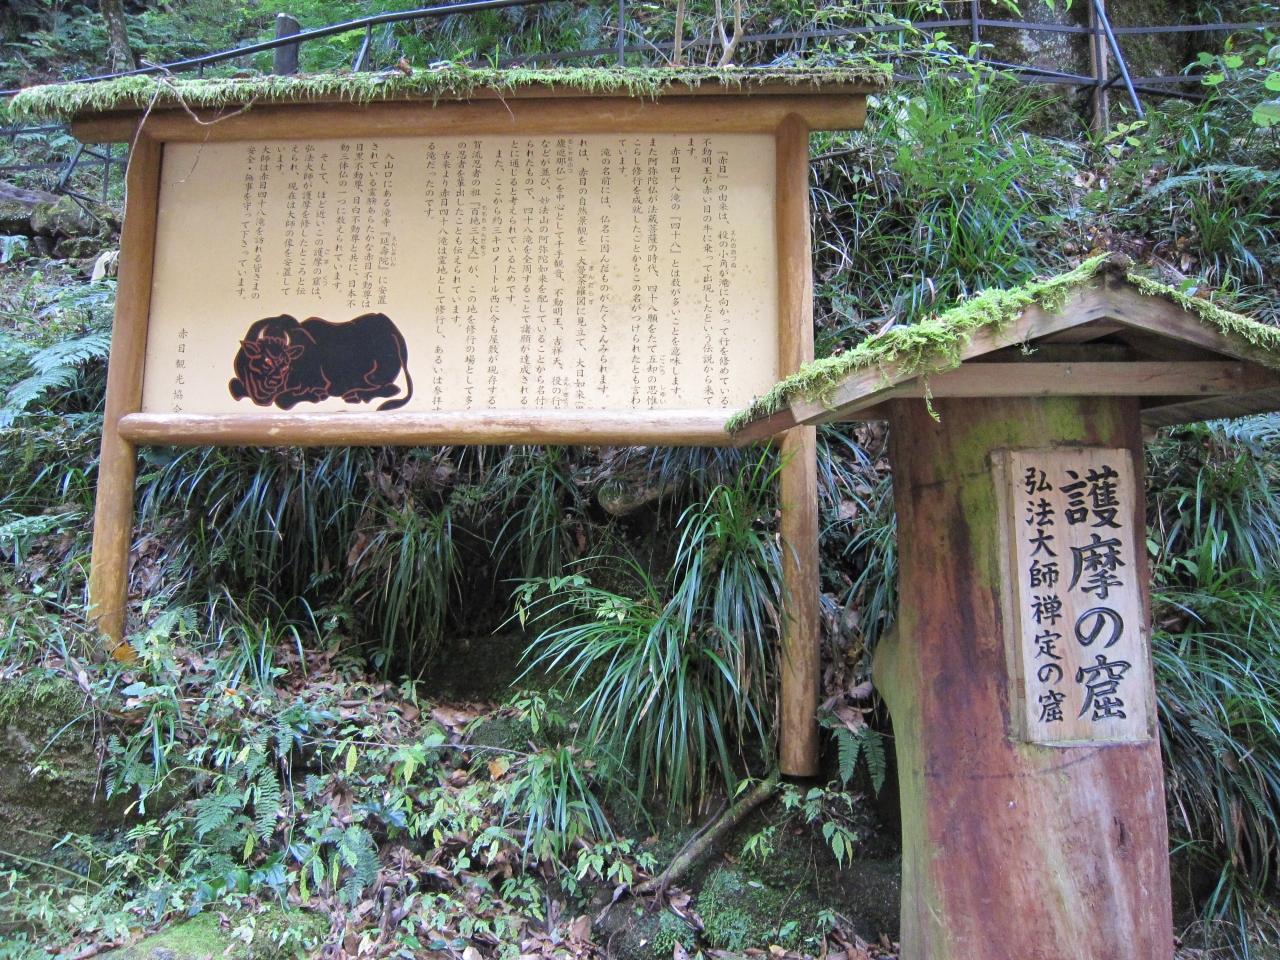 「赤目」の由来は、役の小角が滝に向かって行を修めている
不動明王が赤い目の牛に乗って出現したという伝説から来て
ます。
赤目四十八滝の『四十八』とは数が多いことを意味します。
また阿弥陀仏が法蔵菩薩の時代、四十八願をたて五却の思惟
こらし修行を成就したことからこの名がつけられたとも言わ
ています。
滝の名前には、仏名に因んだものがたくさんみられます。
れは、赤目の自然景観を一大曼荼羅図に見立て、大日如来
慮遮那仏)を中心として千手観音、不動明王、吉祥天、役の行
などが並び、妙法山の阿弥陀如来を配していることから名付
られたもので、四十八滝を全周することで諸願が達成される
とに通じると考えられているためです。
また、ここから約三キロメートル西に今も屋敷が現存する
賀流忍者の祖『百地三太夫』が、この地を修行の場として多
の忍者を輩出したことも伝えられています。
古来より赤目四十八滝は霊地として修行し、あるいは参拝す
る滝だったのです。
入山口にある滝寺『延壽院』に安置
されている霊験あらたかな赤目不動尊は
目黒不動尊、目白不動尊と共に、日本不
動三体仏の一つに数えられています。
そして、ほど近いこの護摩の窟は、
弘法大師が護摩を修したところと伝
えられ、現在は大師の像を安置して
います。
大師は赤目四十八滝を訪れる皆さまの
安全・無事を守って下さっています。
赤目観光協会
護摩の窟
弘法大師禅定の窟